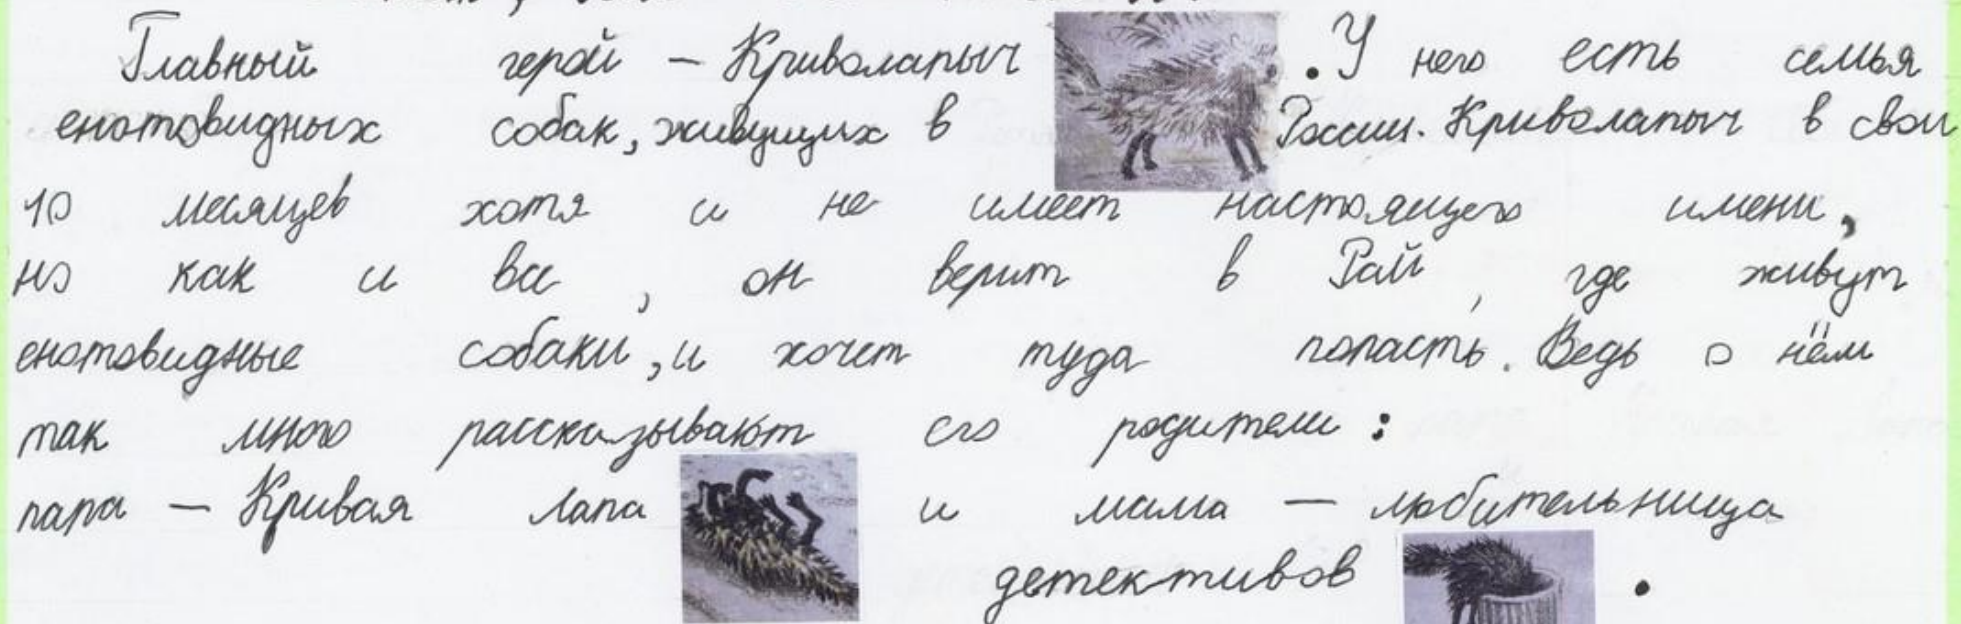 Главный герой – Криволапыч . У него есть семья
енотовидных собак, живущих в России. Криволапыч в свои
10 месяцев хотя и не имеет настоящего имени,
но как и все, он верит в Рай, где живут
енотовидные собаки, и хочет туда попасть. Ведь о нём
так много рассказывают его родители:
папа – Кривая лапа и мама – любительница
детективов .